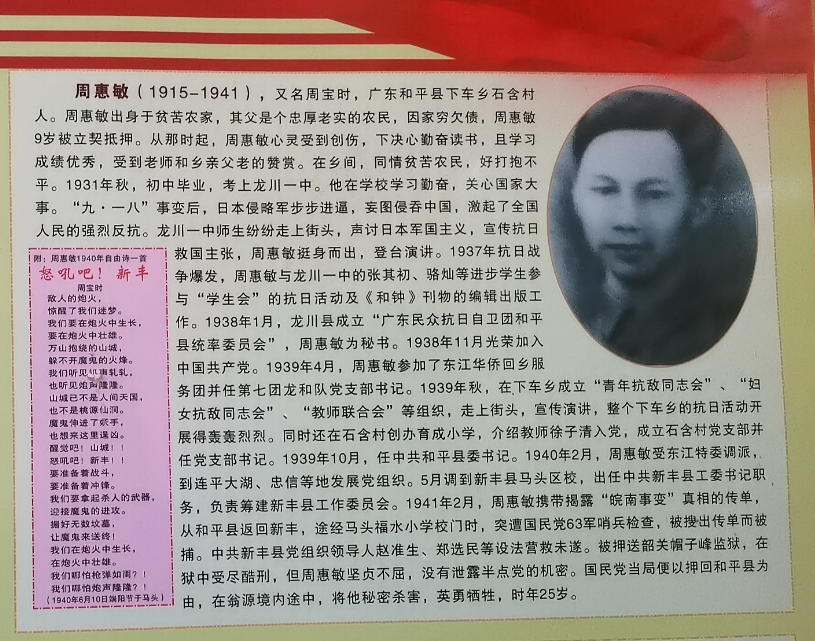 周惠敏（1915-1941），又名周宝时，广东和平县下车乡石含村
人。周惠敏出身于贫苦农家，其父是个忠厚老实的农民，因家穷欠债，周惠敏
9岁被立契抵押。从那时起，周惠敏心灵受到创伤，下决心勤奋读书，且学习
成绩优秀，受到老师和乡亲父老的赞赏。在乡间，同情贫苦农民，好打抱不
平。1931年秋，初中毕业，考上龙川一中。他在学校学习勤奋，关心国家大
事。“九·一八”事变后，日本侵略军步步进逼，妄图侵吞中国，激起了全国
人民的强烈反抗。龙川一中师生纷纷走上街头，声讨日本军国主义，宣传抗日
救国主张，周惠敏挺身而出，登台演讲。1937年抗日战
争爆发，周惠敏与龙川一中的张其初、骆灿等进步学生参
与“学生会”的抗日活动及《和钟》刊物的编辑出版工
作。1938年1月，龙川县成立“广东民众抗日自卫团和平
县统率委员会”，周惠敏为秘书。1938年11月光荣加入
中国共产党。1939年4月，周惠敏参加了东江华侨回乡服
务团并任第七团龙和队党支部书记。1939年秋，在下车乡成立“青年抗敌同志会”、“妇
女抗敌同志会”、“教师联合会”等组织，走上街头，宣传演讲，整个下车乡的抗日活动开
展得轰轰烈烈。同时还在石含村创办育成小学，介绍教师徐子清入党，成立石含村党支部并
任党支部书记。1939年10月，任中共和平县委书记。1940年2月，周惠敏受东江特委调派，
到连平大湖、忠信等地发展党组织。5月调到新丰县马头区校，出任中共新丰县工委书记职
务，负责筹建新丰县工作委员会。1941年2月，周惠敏携带揭露“皖南事变”真相的传单，
从和平县返回新丰，途经马头福水小学校门时，突遭国民党63军哨兵检查，被搜出传单而被
捕。中共新丰县党组织领导人赵准生、郑选民等设法营救未遂。被押送韶关帽子峰监狱，在
狱中受尽酷刑，但周惠敏坚贞不屈，没有泄露半点党的机密。国民党当局便以押回和平县为
由，在翁源境内途中，将他秘密杀害，英勇牺牲，时年25岁。
附：周惠敏1940年自由诗一首
怒吼吧！新丰
周宝时
敌人的炮火，
惊醒了我们迷梦。
我们要在炮火中生长，
要在炮火中壮雄。
万山抱绕的山城，
躲不开魔鬼的火烽。
我们听见机声轧轧，
也听见炮声隆隆。
山城已不是人间天国，
也不是桃源仙洞。
魔鬼伸进了妖手，
也想来这里逞凶。
醒觉吧！山城！！
怒吼吧！新丰！！
要准备着战斗，
要准备着冲锋。
我们要拿起杀人的武器，
迎接魔鬼的进攻。
掘好无数坟墓，
让魔鬼来送终！
我们在炮火中生长，
在炮火中壮雄。
我们哪怕枪弹如雨？！
我们哪怕炮声隆隆？！
（1940年6月10日端阳节于马头）